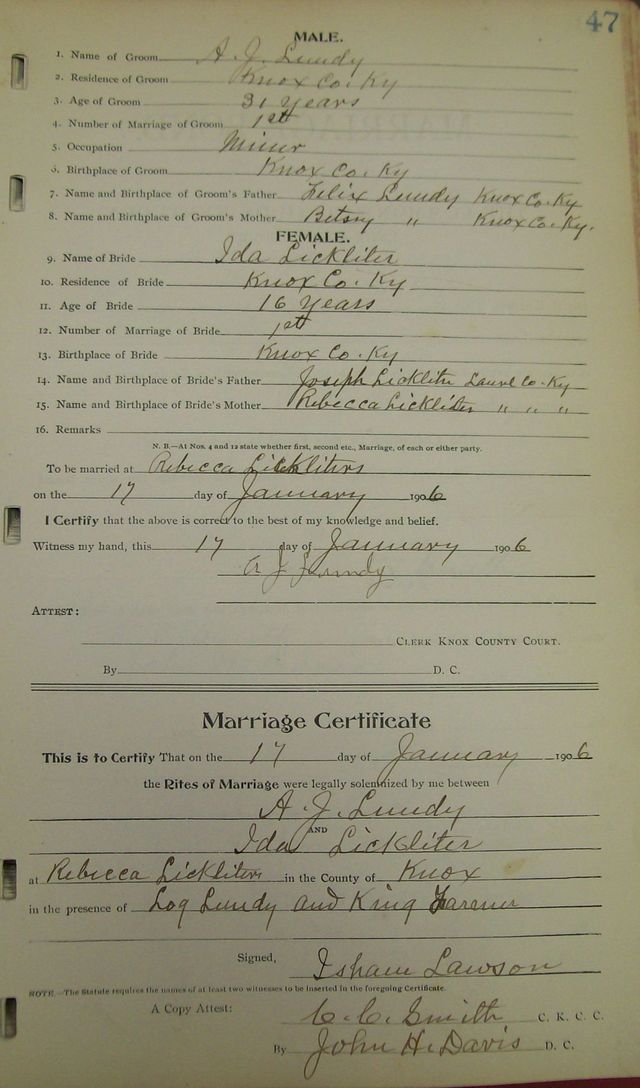 47
MALE.
1. Name of Groom A. J. Lundy
2. Residence of Groom Knox Co. Ky
3. Age of Groom 31 Years
4. Number of Marriage of Groom 1st
5. Occupation Miner
6. Birthplace of Groom Knox Co. Ky
7. Name and Birthplace of Groom's Father Felix Lundy Knox Co. Ky
8. Name and Birthplace of Groom's Mother Betsy " Knox Co. Ky.
FEMALE.
9. Name of Bride Ida Lickliter
10. Residence of Bride Knox Co. Ky
11. Age of Bride 16 Years
12. Number of Marriage of Bride 1st
13. Birthplace of Bride Knox Co. Ky
14. Name and Birthplace of Bride's Father Joseph Lickliter Laurel Co. Ky
15. Name and Birthplace of Bride's Mother Rebecca Lickliter " " "
16. Remarks
N. B.—At Nos. 4 and 12 state whether first, second etc., Marriage, of each or either party.
To be married at Rebecca Lickliters
on the 17 day of January 1906
I Certify that the above is correct to the best of my knowledge and belief.
Witness my hand, this 17 day of January 1906
A J Lundy
ATTEST:
CLERK KNOX COUNTY COURT.
By D. C.
Marriage Certificate
This is to Certify That on the 17 day of January 1906
the Rites of Marriage were legally solemnized by me between
A. J. Lundy
AND
Ida Lickliter
at Rebecca Lickliters in the County of Knox
in the presence of Log Lundy and King Farmer
Signed, Isham Lawson
NOTE—The Statute requires the names of at least two witnesses to be inserted in the foregoing Certificate.
A Copy Attest: C. C. Smith C. K. C. C.
By John H. Davis D. C.